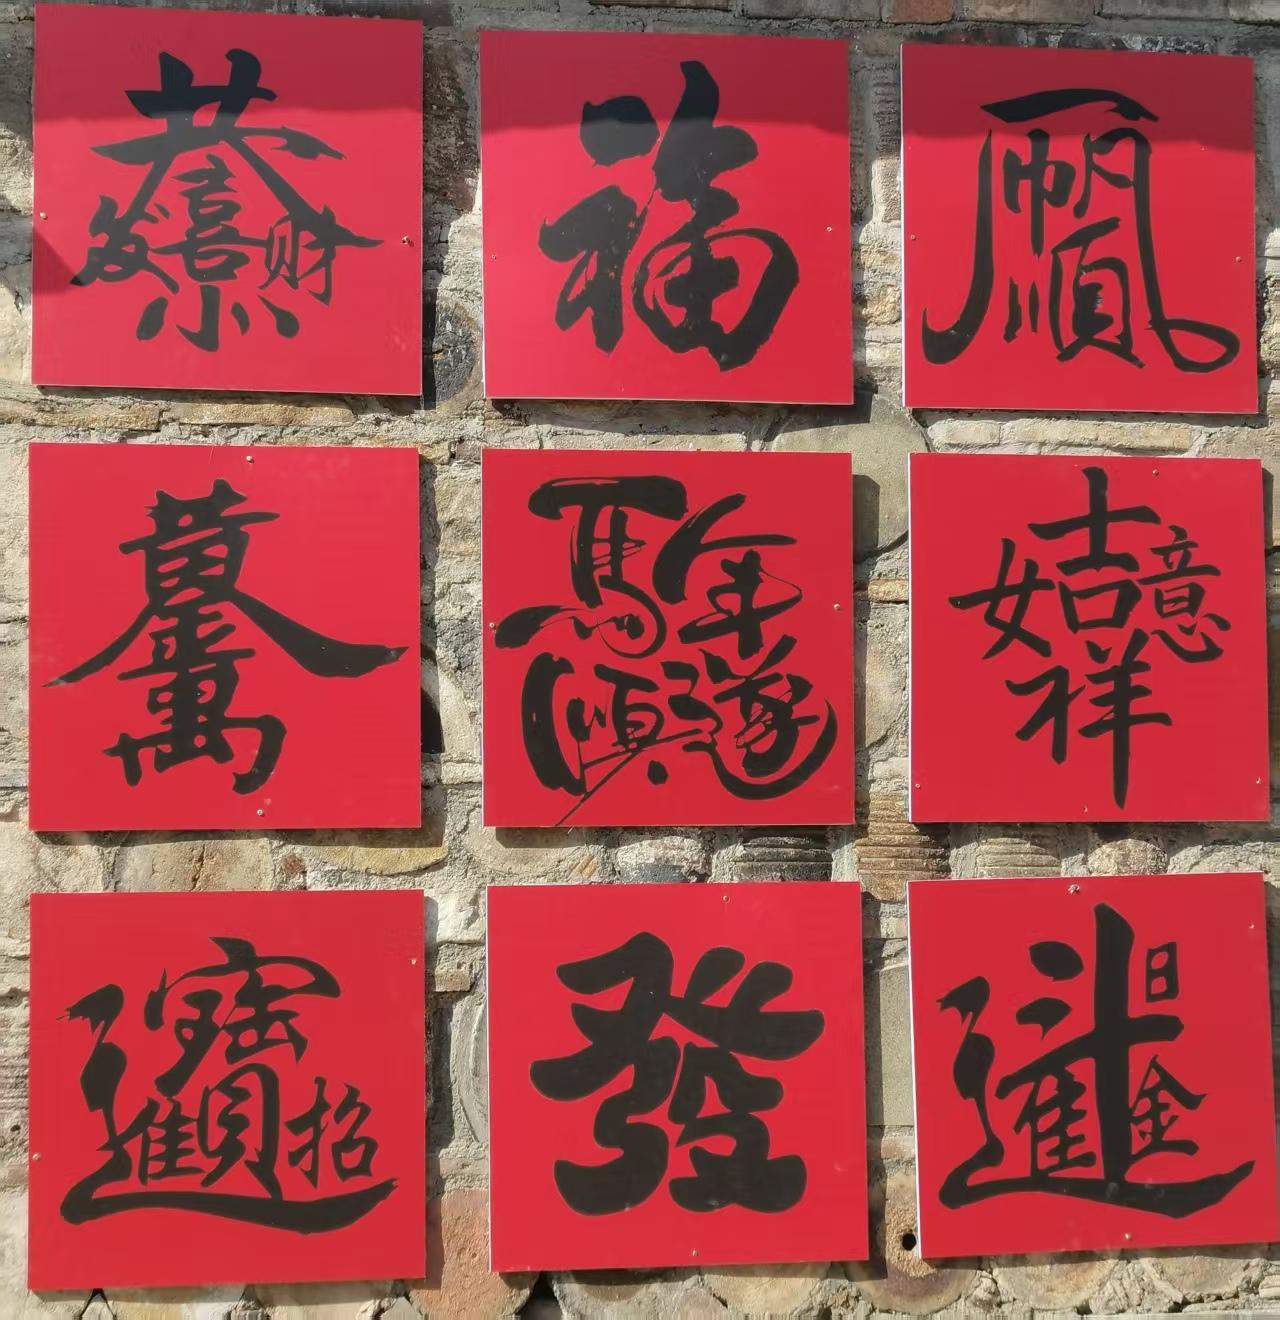 恭喜发财
福
一帆风顺
黄金萬两
馬年順遂
吉祥如意
招财進寶
發
日進斗金